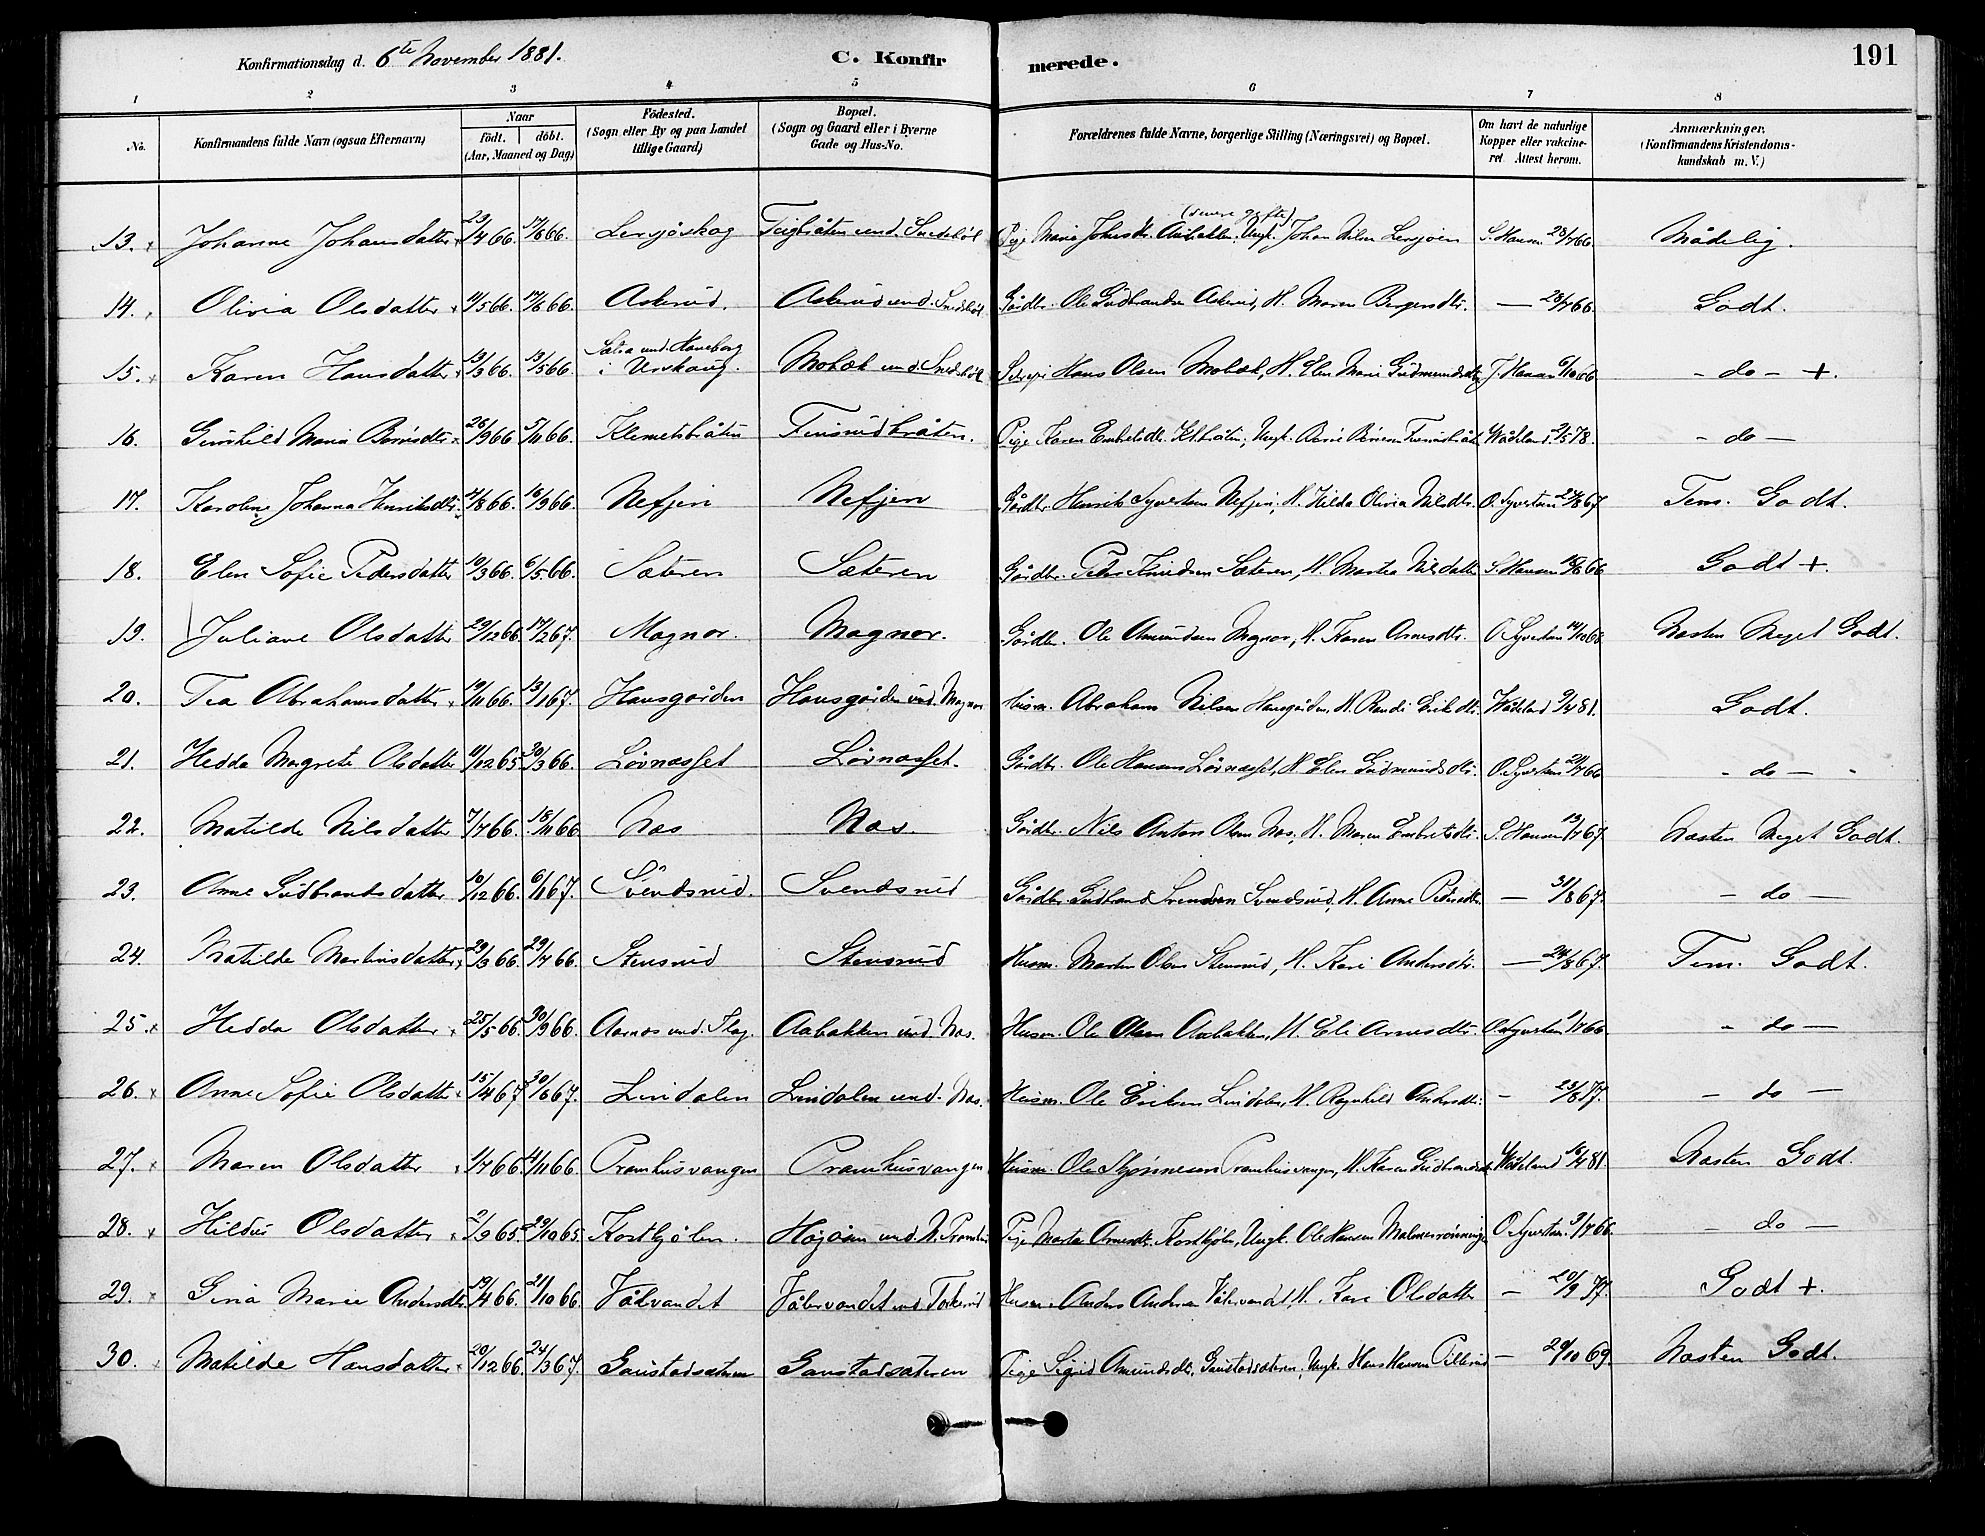 Konfirmationsdag d. 6te November 1881. C. Konfirmerede. 191
1 2 3 4 5 6 7 8
No. Konfirmandens fulde Navn (ogsaa Efternavn) Naar født. døbt. (Aar, Maaned og Dag) Födested. (Sogn eller By og paa Landet tillige Gaard) Bopæl. (Sogn og Gaard eller i Byerne Gade og Hus-No. Forældrenes fulde Navne, borgerlige Stilling (Næringsvei) og Bopæl. Om havt de naturlige Kopper eller vakcineret Attest herom. Anmærkninger. (Konfirmandens Kristendomskundskab m. V.)
(senere gifte)
13. Johanne Johansdatter 23/4 66. 17/6 66. Lersjöskog Teigbråten und. Pige Maria Johnsdtr. Aabakken, Ungk. Johan Nilsen Lersjöen S. Hansen 28/7 66 Mådelig.
14. Olivia Olsdatter 11/5 66. 17/6 66. Askerud. Askerud und. Gårdbr. Ole Gudbrandsen Askerud, H. Maren Bergersdtr. — 28/7 66. Godt.
15. Karen Hansdatter 13/3 66. 13/5 66. Sætra und. Haneborg i Urskoug. Mobæk und. Hans Olsen Mobæk, H. Elen Marie Gudmundsdtr J. Hansen 6/10 66 - do - +.
16. Gunhild Maria 26/9 66 5/11 66. Klemetsbråten Finsrudbråten. Pige Karen Embretsdtr. Wådeland 2/5 78. - do -
17. Karoline Johanna Henriksdtr. 4/8 66. 16/9 66. Nefjen Nefjen Gårdbr. Henrik Syversen Nefjen, H. Hilda Olivia Nilsdtr. O. Syvertsen 21/8 67 Tem. Godt.
18. Elen Sofie Pedersdatter 10/3 66. 6/5 66. Sæteren Sæteren Gårdbr. Peder Knudsen Sæteren, H. Martea Nilsdatter S. Hansen 18/8 66 Godt +.
19. Juliane Olsdatter 29/12 66. 17/2 67. Magnor. Magnor. Gårdbr. Ole Amundsen Magnor, H. Karen Arnesdtr. O. Syvertsen 14/10 68. Næsten Meget Godt.
20. Tea Abrahamsdatter 19/11 66. 13/1 67. Hansgården Hansgården und. Magnor Husm. Abraham Nilsen Hansgården, H. Randi Eriksdtr. Wådeland 9/4 81. Godt.
21. Hedda Margrete Olsdatter 11/12 65 30/3 66. Lövnæsset Lövnæsset. Gårdbr. Ole Hansen Lövnæsset, H. Elen Gudmundsdtr. O. Syvertsen 21/7 66 - do -
22. Matilde Nilsdatter 7/7 66. 18/11 66 Næs Næs. Gårdbr. Nils Anton Olsen Næs, H. Maren Embretsdtr. S. Hansen 13/7 67. Næsten Meget Godt.
23. Anne Gudbrandsdatter 10/12 66. 6/1 67. Svendsrud. Svendsrud Gårdbr. Gudbrand Svendsen Svendsrud, H. Anne Pedersdtr. — 31/8 67. - do -
24. Matilde Martinsdatter 29/3 66. 29/7 66. Stensrud Stensrud Husm. Martin Olsen Stensrud, H. Kari Andersdtr. — 24/8 67. Tem. Godt.
25. Hedda Olsdatter 25/5 66. 30/9 66. Aarnæs und. Flag. Aabakken und. Næs. Husm. Ole Olsen Aabakken, H. Eli Arnesdtr. O. Syvertsen 1/7 66 - do -
26. Anne Sofie Olsdatter 15/4 67 30/6 67. Lindalen Lindalen und. Næs. Husm. Ole Eriksen Lindalen, H. Ragnhild Andersdtr. — 23/8 77. - do -
27. Maren Olsdatter 1/7 66. 4/11 66. Pramhusvangen Pramhusvangen Husm. Ole Pramhusvangen, H. Karen Gudbrandsdtr. Wådeland 10/4 81. Næsten Godt.
28. Hilda Olsdatter 2/9 65. 29/10 65. Kortbjölen. Högåsen und. N. Pramhus Pige Marta Arnesdtr. Kortbjölen, Ungk. Ole Hansen Malmerrönningen O. Syvertsen 3/7 66. - do -
29. Gina Marie Andersdtr. 19/4 66. 21/10 66. Vålvandet Vålervandet und. Torkerud Husm. Anders Andersen Vålervandet, H. Kari Olsdatter — 20/9 77. Godt +.
30. Matilde Hansdatter 20/12 66. 24/3 67. Gaustadsæteren Gaustadsæteren Pige Sigrid Amundsdtr. Gaustadsæteren, Ungk. Hans Hansen Pillerud — 29/10 69. Næsten Godt.